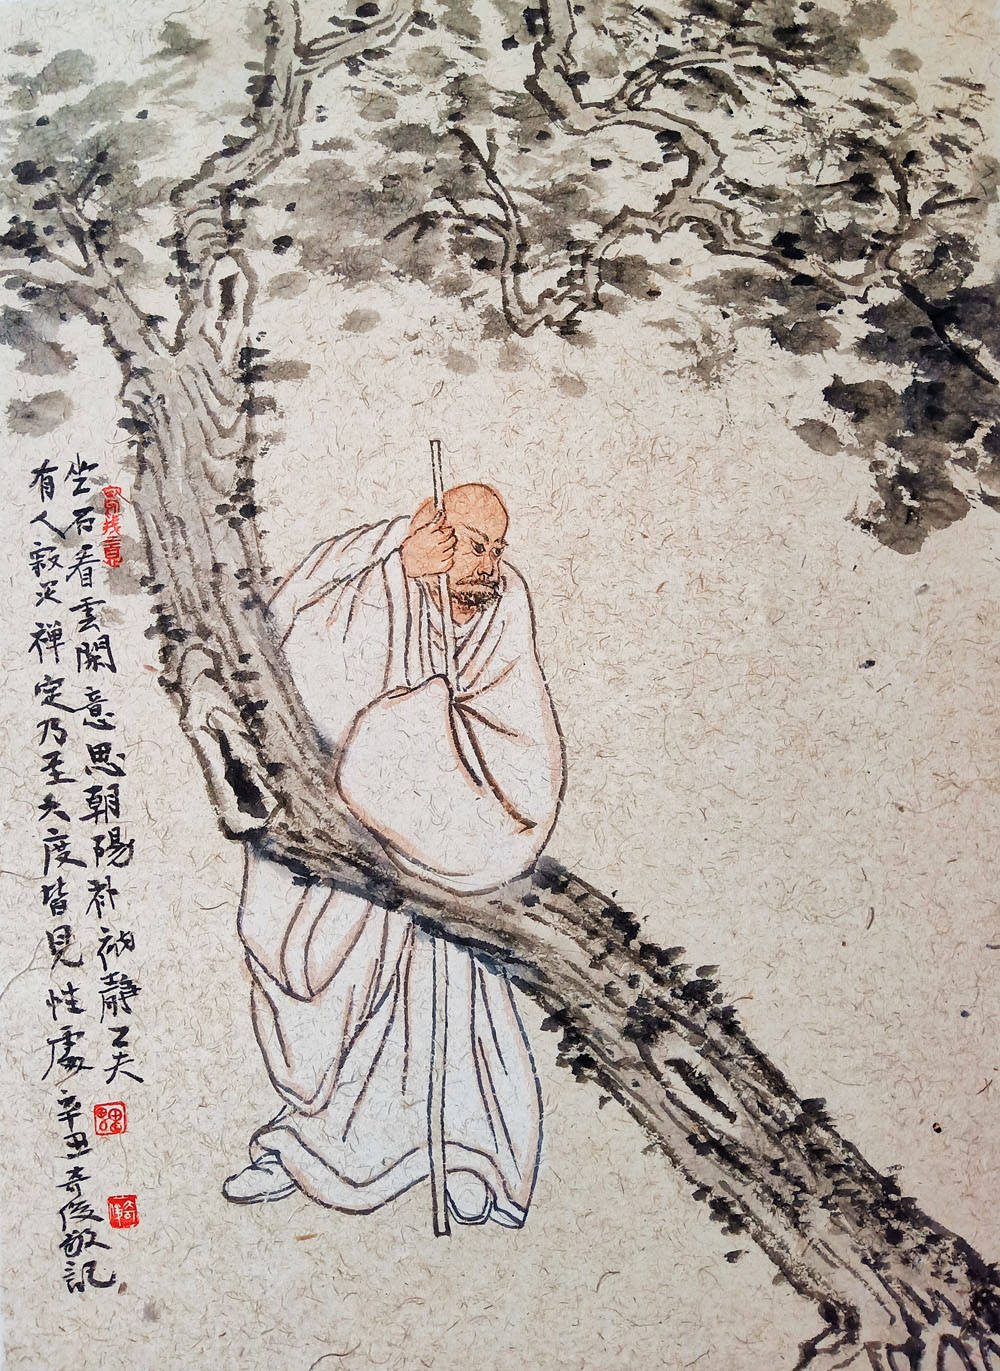 坐石看雲閑意思朝陽补衲靜工夫
有人寂灭禅定乃至六度皆見性處
辛丑奇俊敬記
奇俊